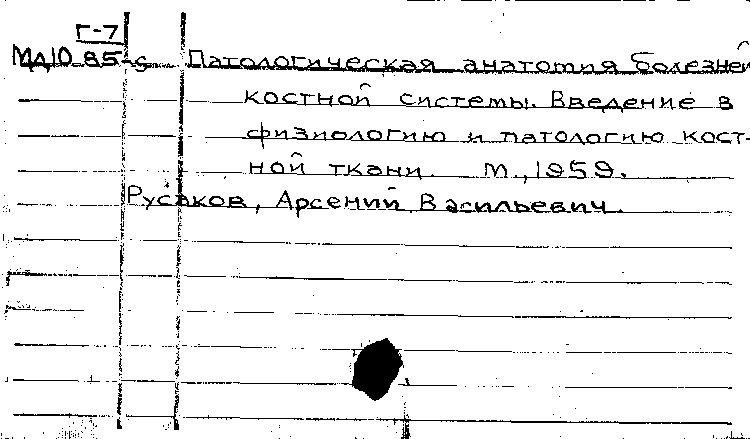 Г-7
МД10 85-6 Патологическая анатомия болезней
костной системы. Введение в
физиологию и патологию кост-
ной ткани. М., 1959.
Русаков, Арсений Васильевич.